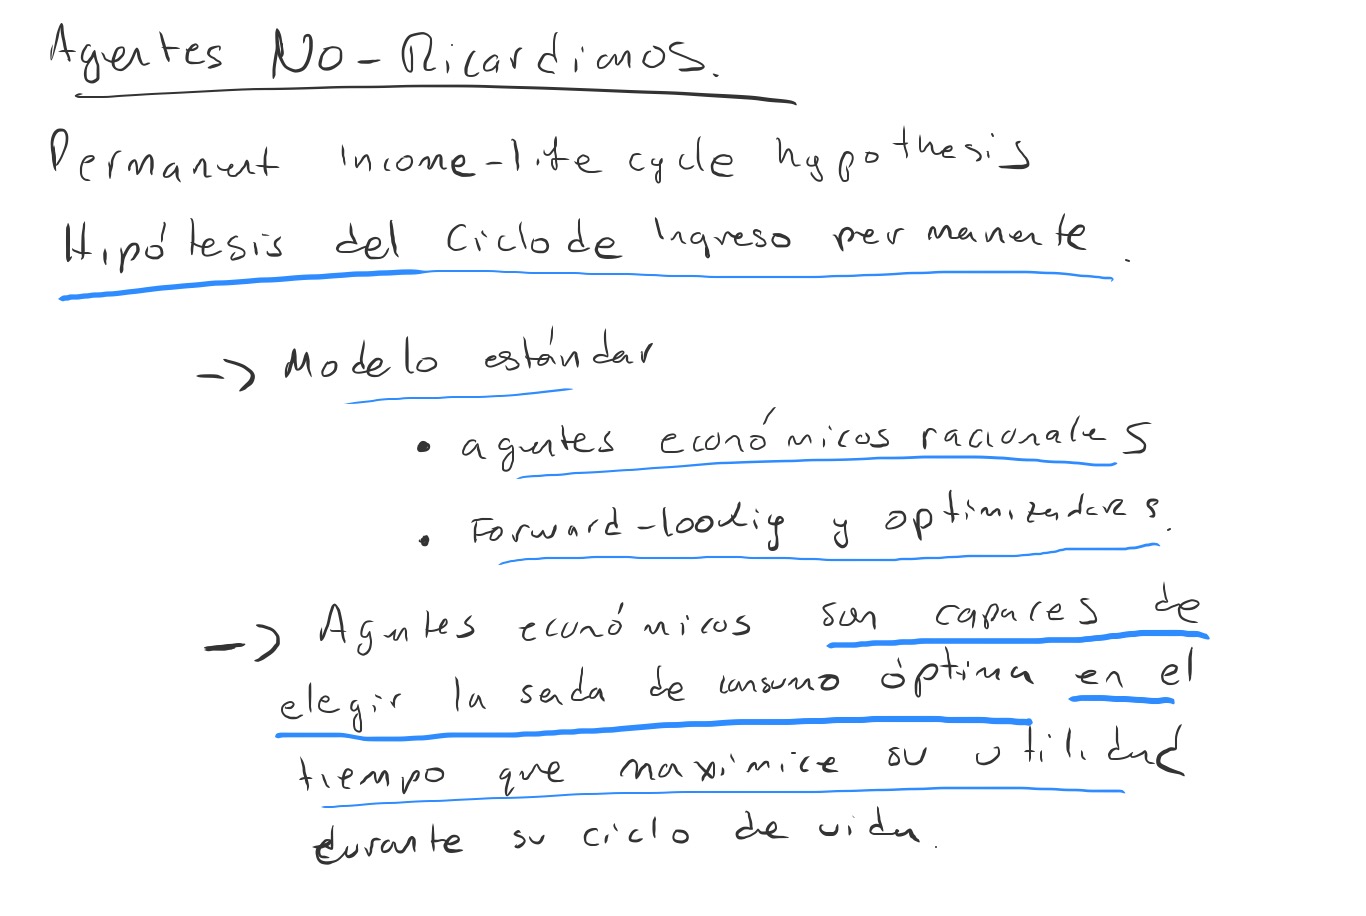 Agentes No-Ricardianos.
Permanent Income-life cycle hypothesis
Hipótesis del Ciclo de Ingreso permanente.
-> Modelo estándar
• agentes económicos racionales
• Forward-looking y optimizadores.
-> Agentes económicos son capaces de
elegir la senda de consumo óptima en el
tiempo que maximice su utilidad
durante su ciclo de vida.